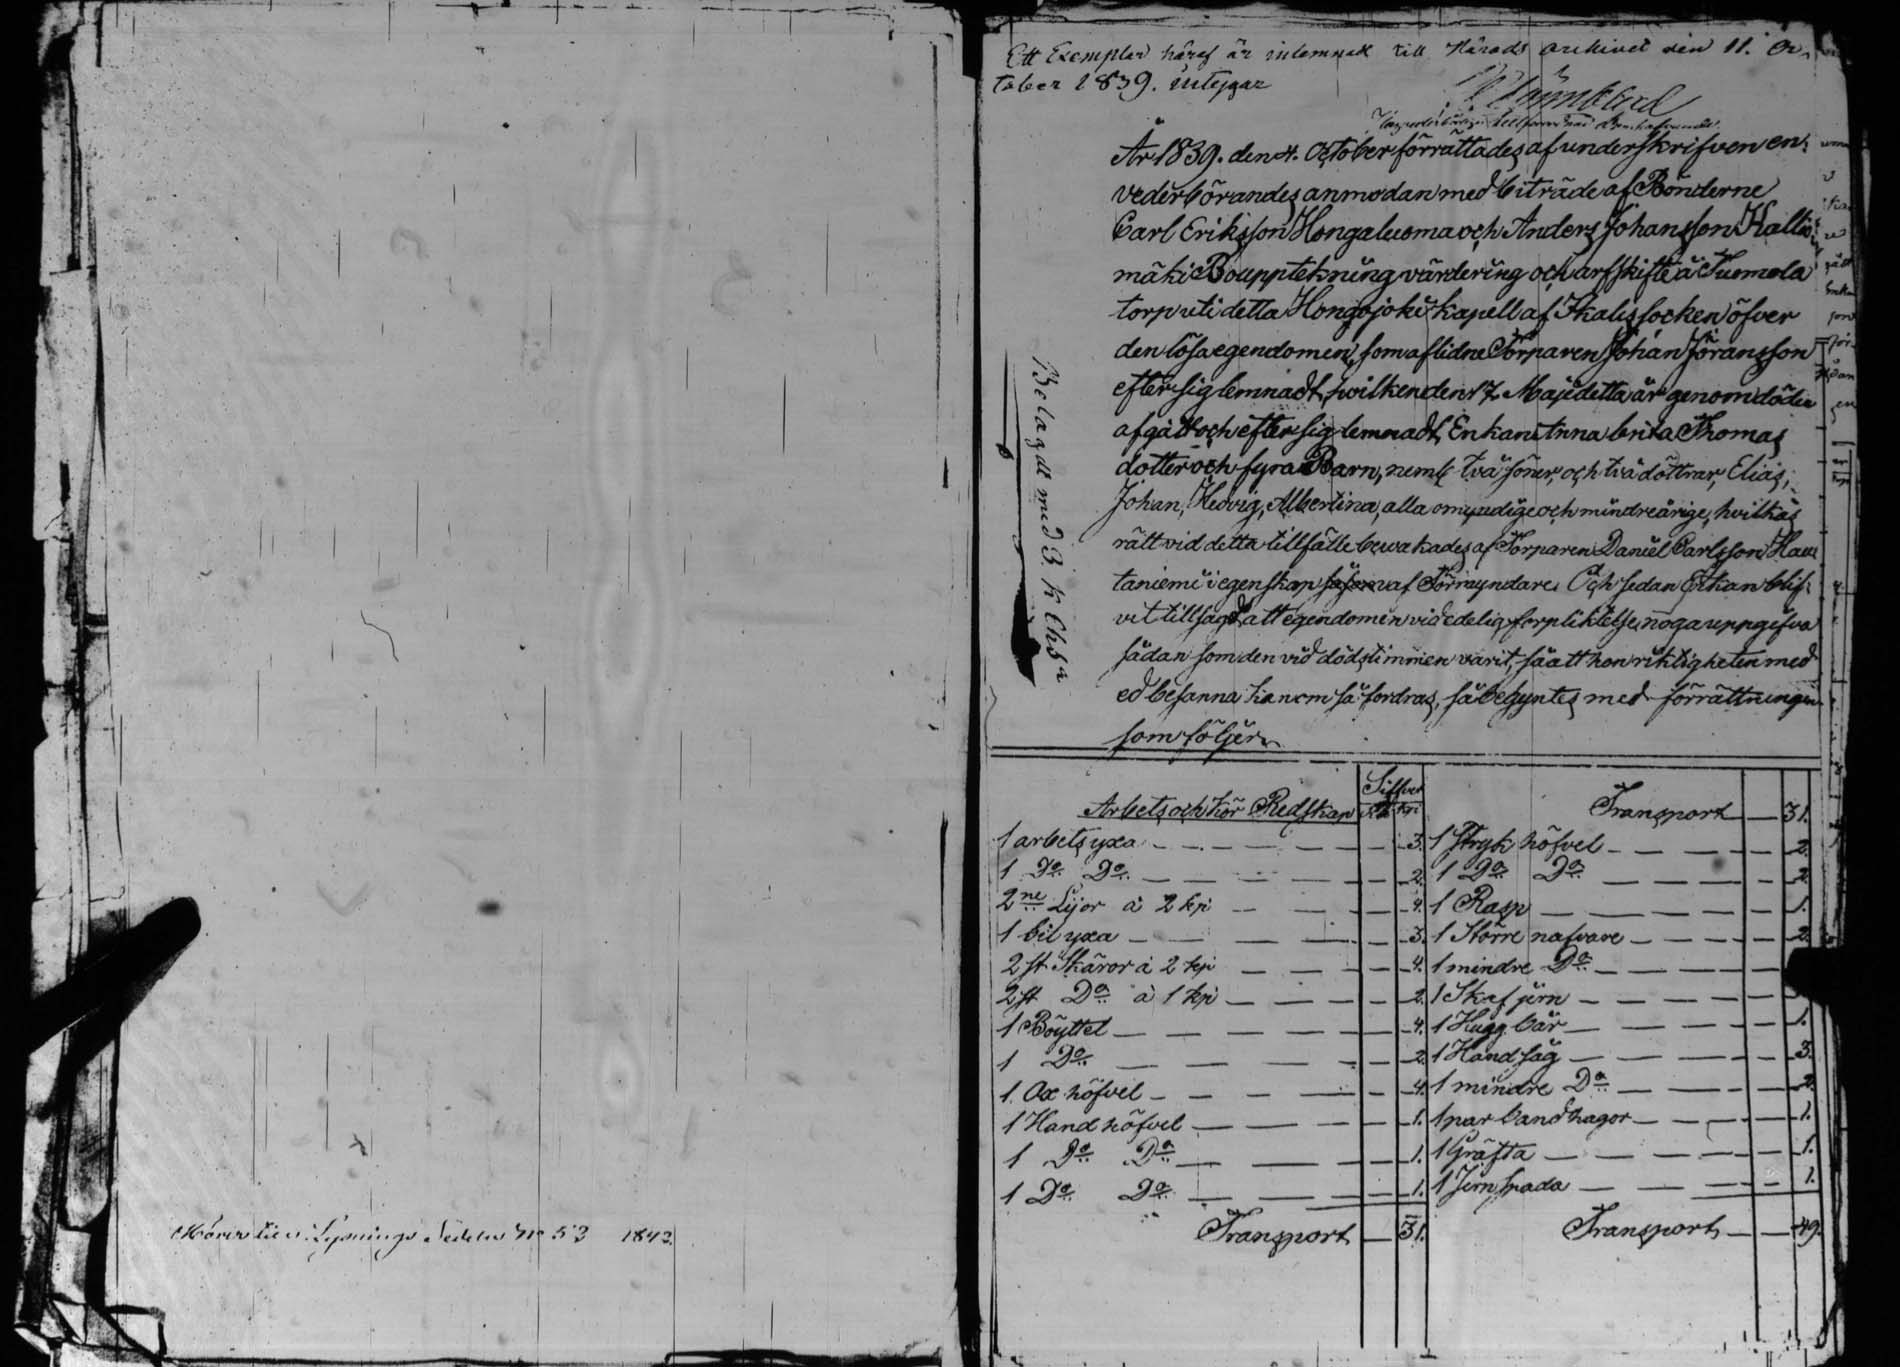 Hörer till Lysnings Sedeln No 53 1842.
Ett Exemplar häraf är inlemnadt till Härads archivet den 11. Oc-
tober 1839. intygar
År 1839. den 4. October förrättades af underskrifven en-
vederbörandes anmodan med biträde af Bönderne
Carl Eriksson Hongaluoma och Anders Johansson Kallio-
mäki Bouppteckning värdering och arfskifte å Tuomela
torp uti detta Hongojoki kapell af Ikalis socken öfver
den lösa egendomen, som aflidne Torparen Johan Jöransson
efter sig lemnadt, hvilken den 17 Maji detta år genom döden
afgått och efter sig lemnadt, Enkan Anna brita Thomas
dotter och fyra Barn, neml. två söner, och två döttrar, Elias,
Johan, Hedvig, Albertina, alla omyndige och minderårige, hvilkas
rätt vid detta tillfälle bewakades af Torparen Daniel Carlsson Hau
taniemi i egenskap såsom af Förmyndare. Och sedan Enkan blif-
vit tillsagd att egendomen vid edelig förpliktelse noga uppgifva
sådan som den vid dödstimmen varit, så att hon riktigheten med
ed besanna kan om så fordras, så begyntes med förrättningen
som följer
Belagdt med 3 k Chs
Arbets och Kör Redskap
Silfver
Rub. kpi
1 arbets yxa 3.
1 Do Do 2.
2ne Lijor à 2 kpi 4.
1 bil yxa 3.
2 st Skäror à 2 kpi 4.
2 st Do à 1 kpi 2.
1 Böyttel 4.
1 Do 2.
1 Ox höfvel 4.
1 Hand höfvel 1.
1 Do Do 1.
1 Do Do 1.
Transport 31.
Transport 31.
1 Stryk höfvel 2.
1 Do Do 2.
1 Rasp 1.
1 Större nafvare 2.
1 mindre Do
1 Skaf jern
1 Hugg bår 1.
1 Hand såg 3.
1 mindre Do 2.
1 par bandhagor 1.
1 Gräfta 1.
1 Jern spada 1.
Transport 49.